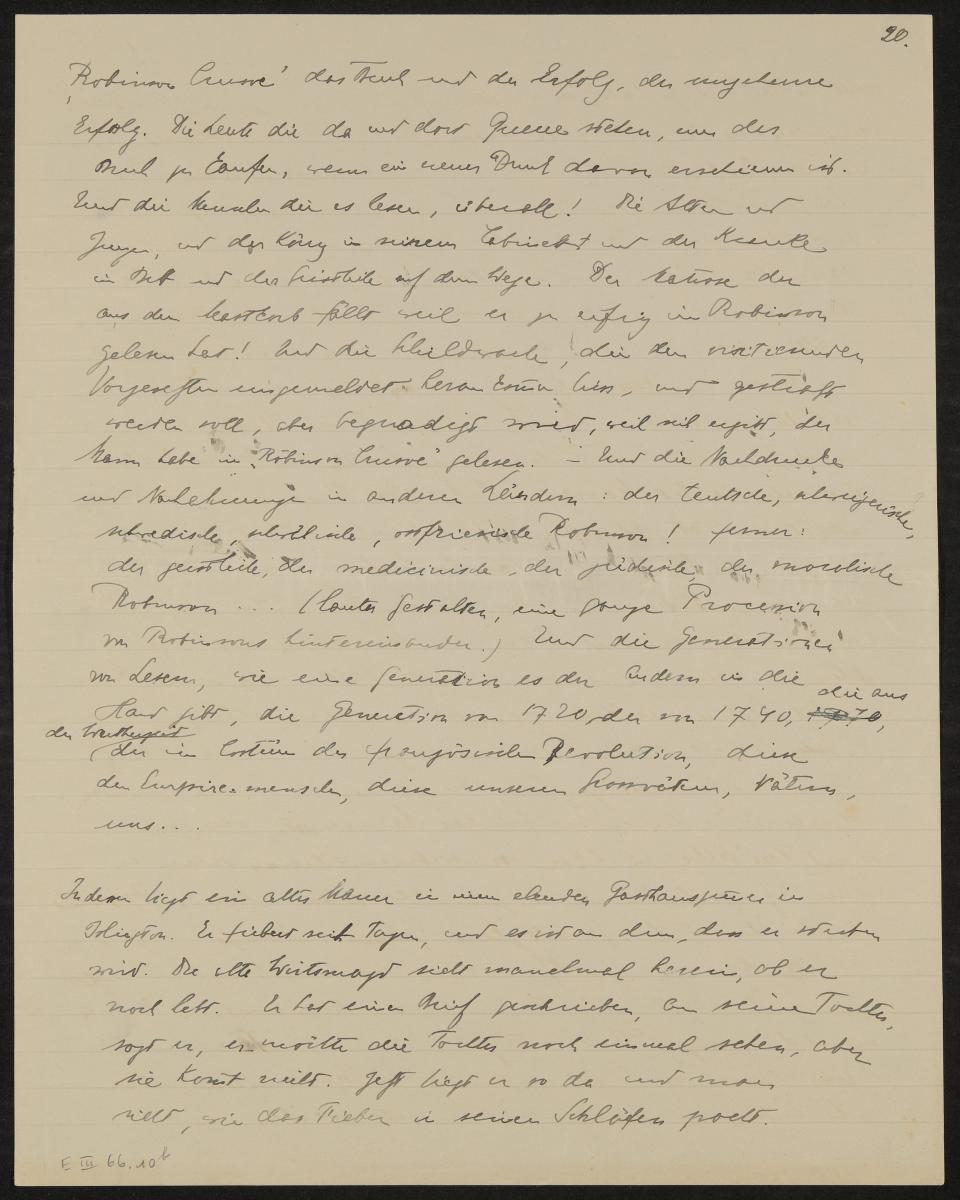 20.
"Robinson Crusoe" das Buch und der Erfolg, der ungeheure
Erfolg. Die Leute die da und dort Queue stehen, um das
Buch zu kaufen, wenn ein neuer Druck davon erschienen ist.
Und die Menschen die es lesen, überall! Die Alten und
Jungen, und der König in seinem Cabinett und der Kranke
im Bett und der Geistliche auf dem Wege. Der Matrose der
aus dem Mastkorb fällt weil er zu eifrig im Robinson
gelesen hat! Und die Schildwache, die den visitierenden
Vorgesetzten ungemeldet heran kommen liess, und gestraft
werden soll, aber begnadigt wird, weil sich ergibt, der
Mann habe in "Robinson Crusoe" gelesen. – Und die Nachdrucke
und Nachahmungen in anderen Ländern: der teutsche, schweizerische,
schwedische, schottische, ostfriesische Robinson! ferner:
der geistliche, der medicinische, der jüdische, der moralische
Robinson ... (lauter Gestalten, eine ganze Procession
von Robinsons hintereinander.) Und die Generationen
von Lesern, wie eine Generation es der andern in die
Hand gibt, die Generation von 1720 der von 1740, die aus
der Wertherzeit
der im Costüm der französischen Revolution, diese
den Empire-menschen, diese unseren Grossvätern, Vätern,
uns...
Indessen liegt ein alter Mann in einem elenden Gasthauszimmer in
Islington. Er fiebert seit Tagen, und es ist an dem, dass er sterben
wird. Die alte Wirtsmagd sieht manchmal herein, ob er
noch lebt. Er hat einen Brief geschrieben, an seine Tochter,
sagt er, er möchte die Tochter noch einmal sehen, aber
sie kommt nicht. Jetzt liegt er so da und man
sieht, wie das Fieber in seinen Schläfen pocht.
E III 66.10b